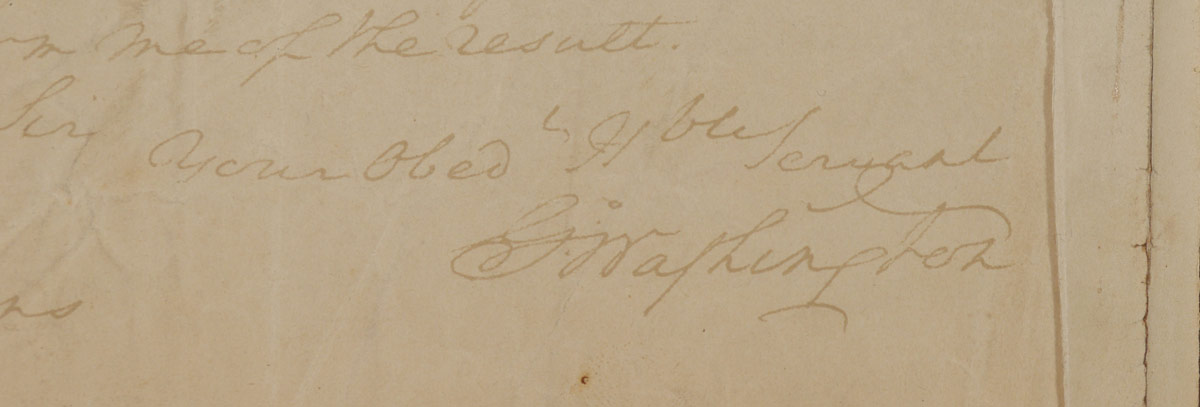 me of the result.
Sir
Your Obed^t H^ble Servant
G:Washington